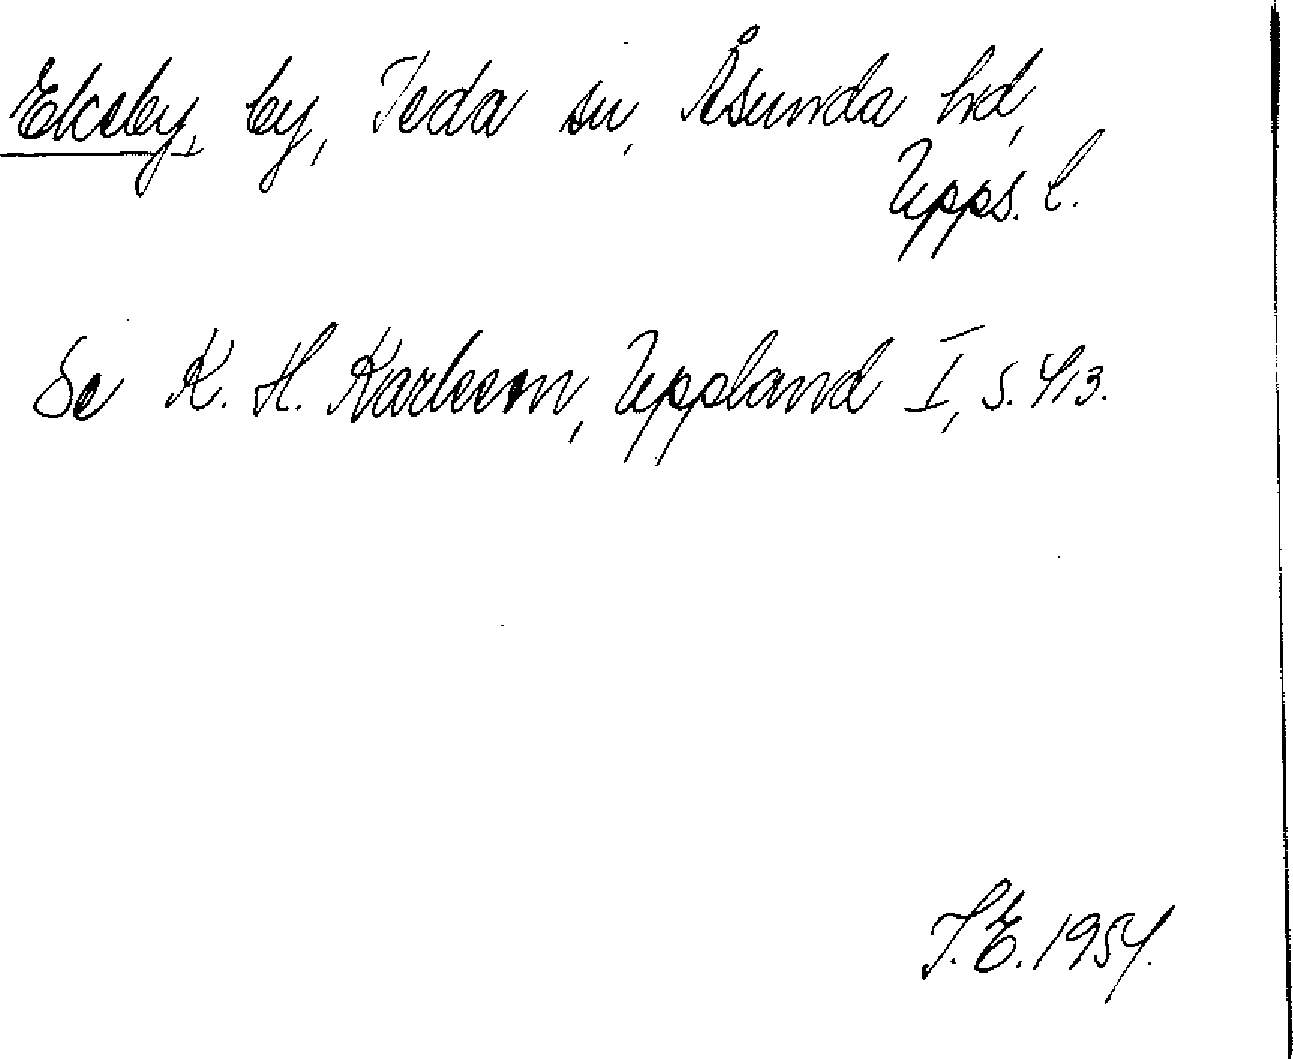 Eksby, by, Teda sn, Åsunda hd,
Upps. l.
Se K. H. Karlsson, Uppland I, s. 413.
I. E. 1954.